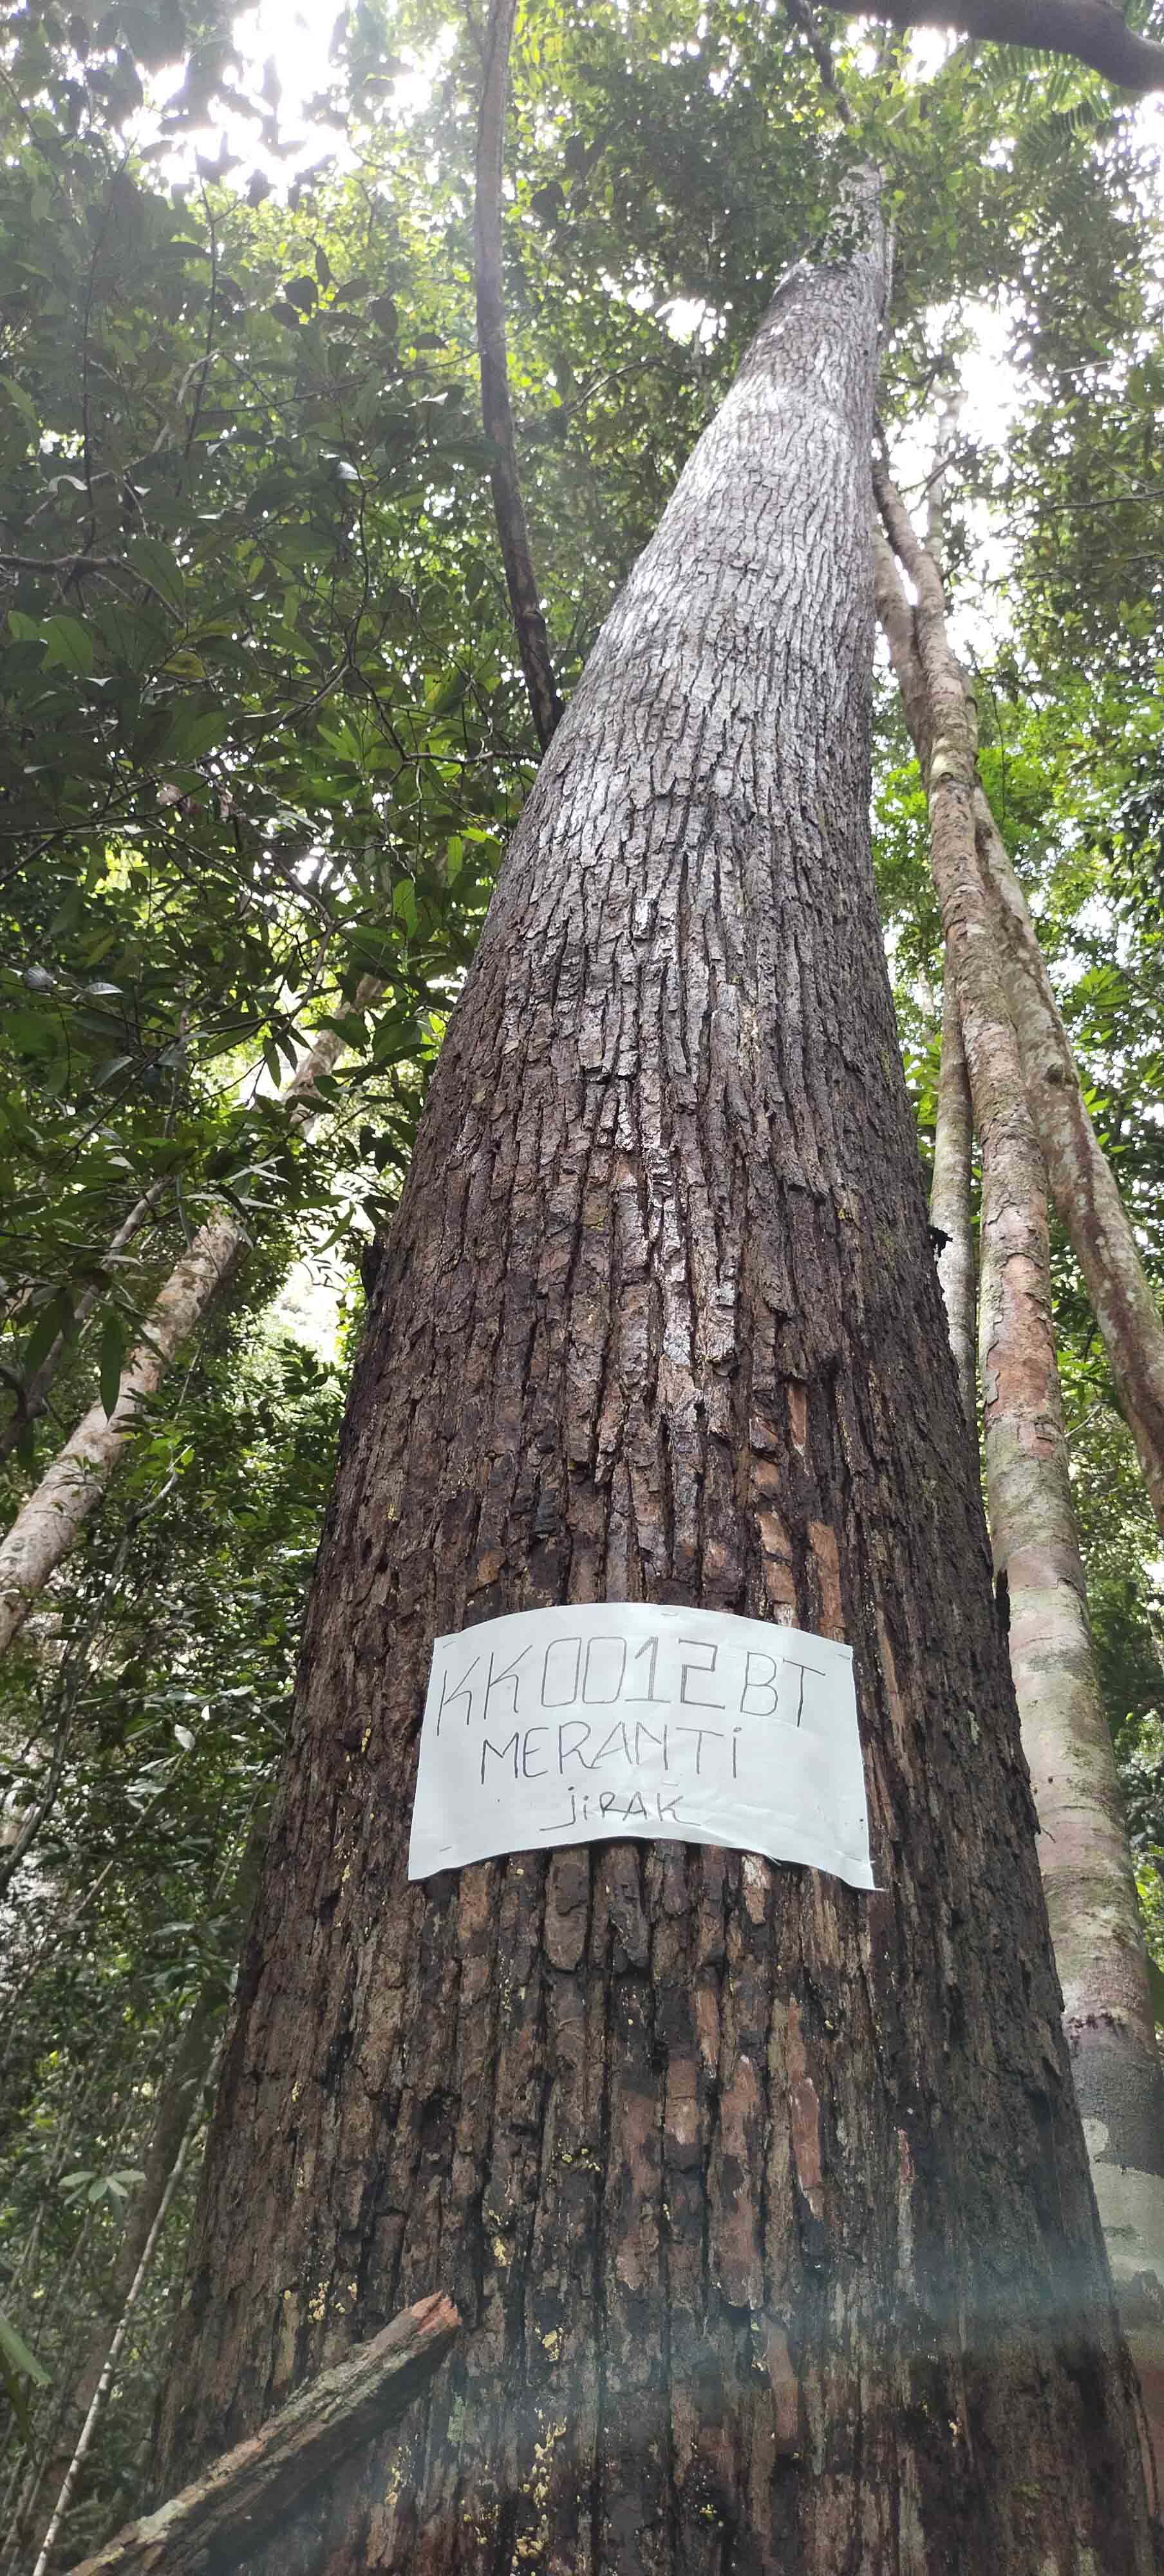 KK0012BT
MERANTi
jiRAK